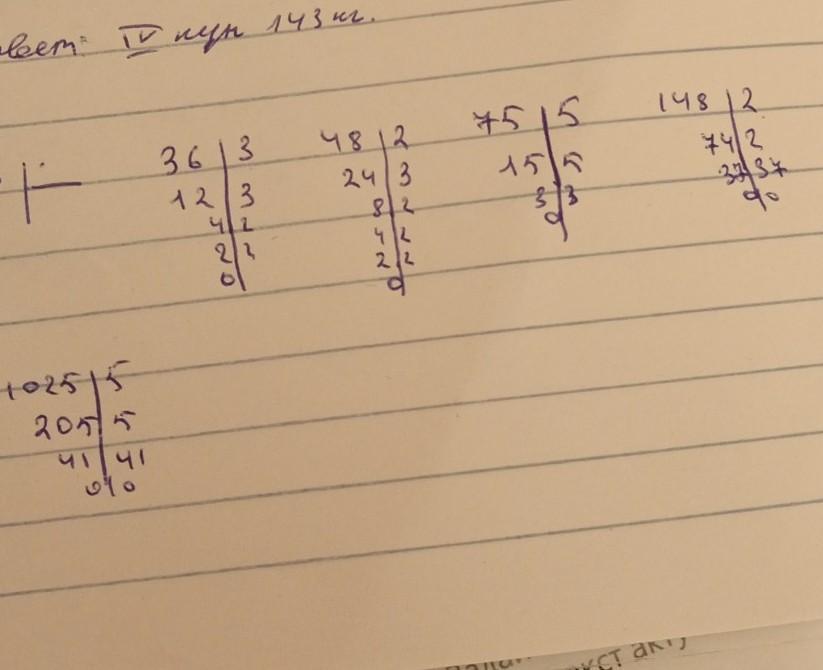 IV күн 143 кг.
36 | 3
12 | 3
4 | 2
2 | 2
0
48 | 2
24 | 3
8 | 2
4 | 2
2 | 2
0
75 | 5
15 | 5
3 | 3
0
148 | 2
74 | 2
37 | 37
0 | 0
1025 | 5
205 | 5
41 | 41
0 | 0